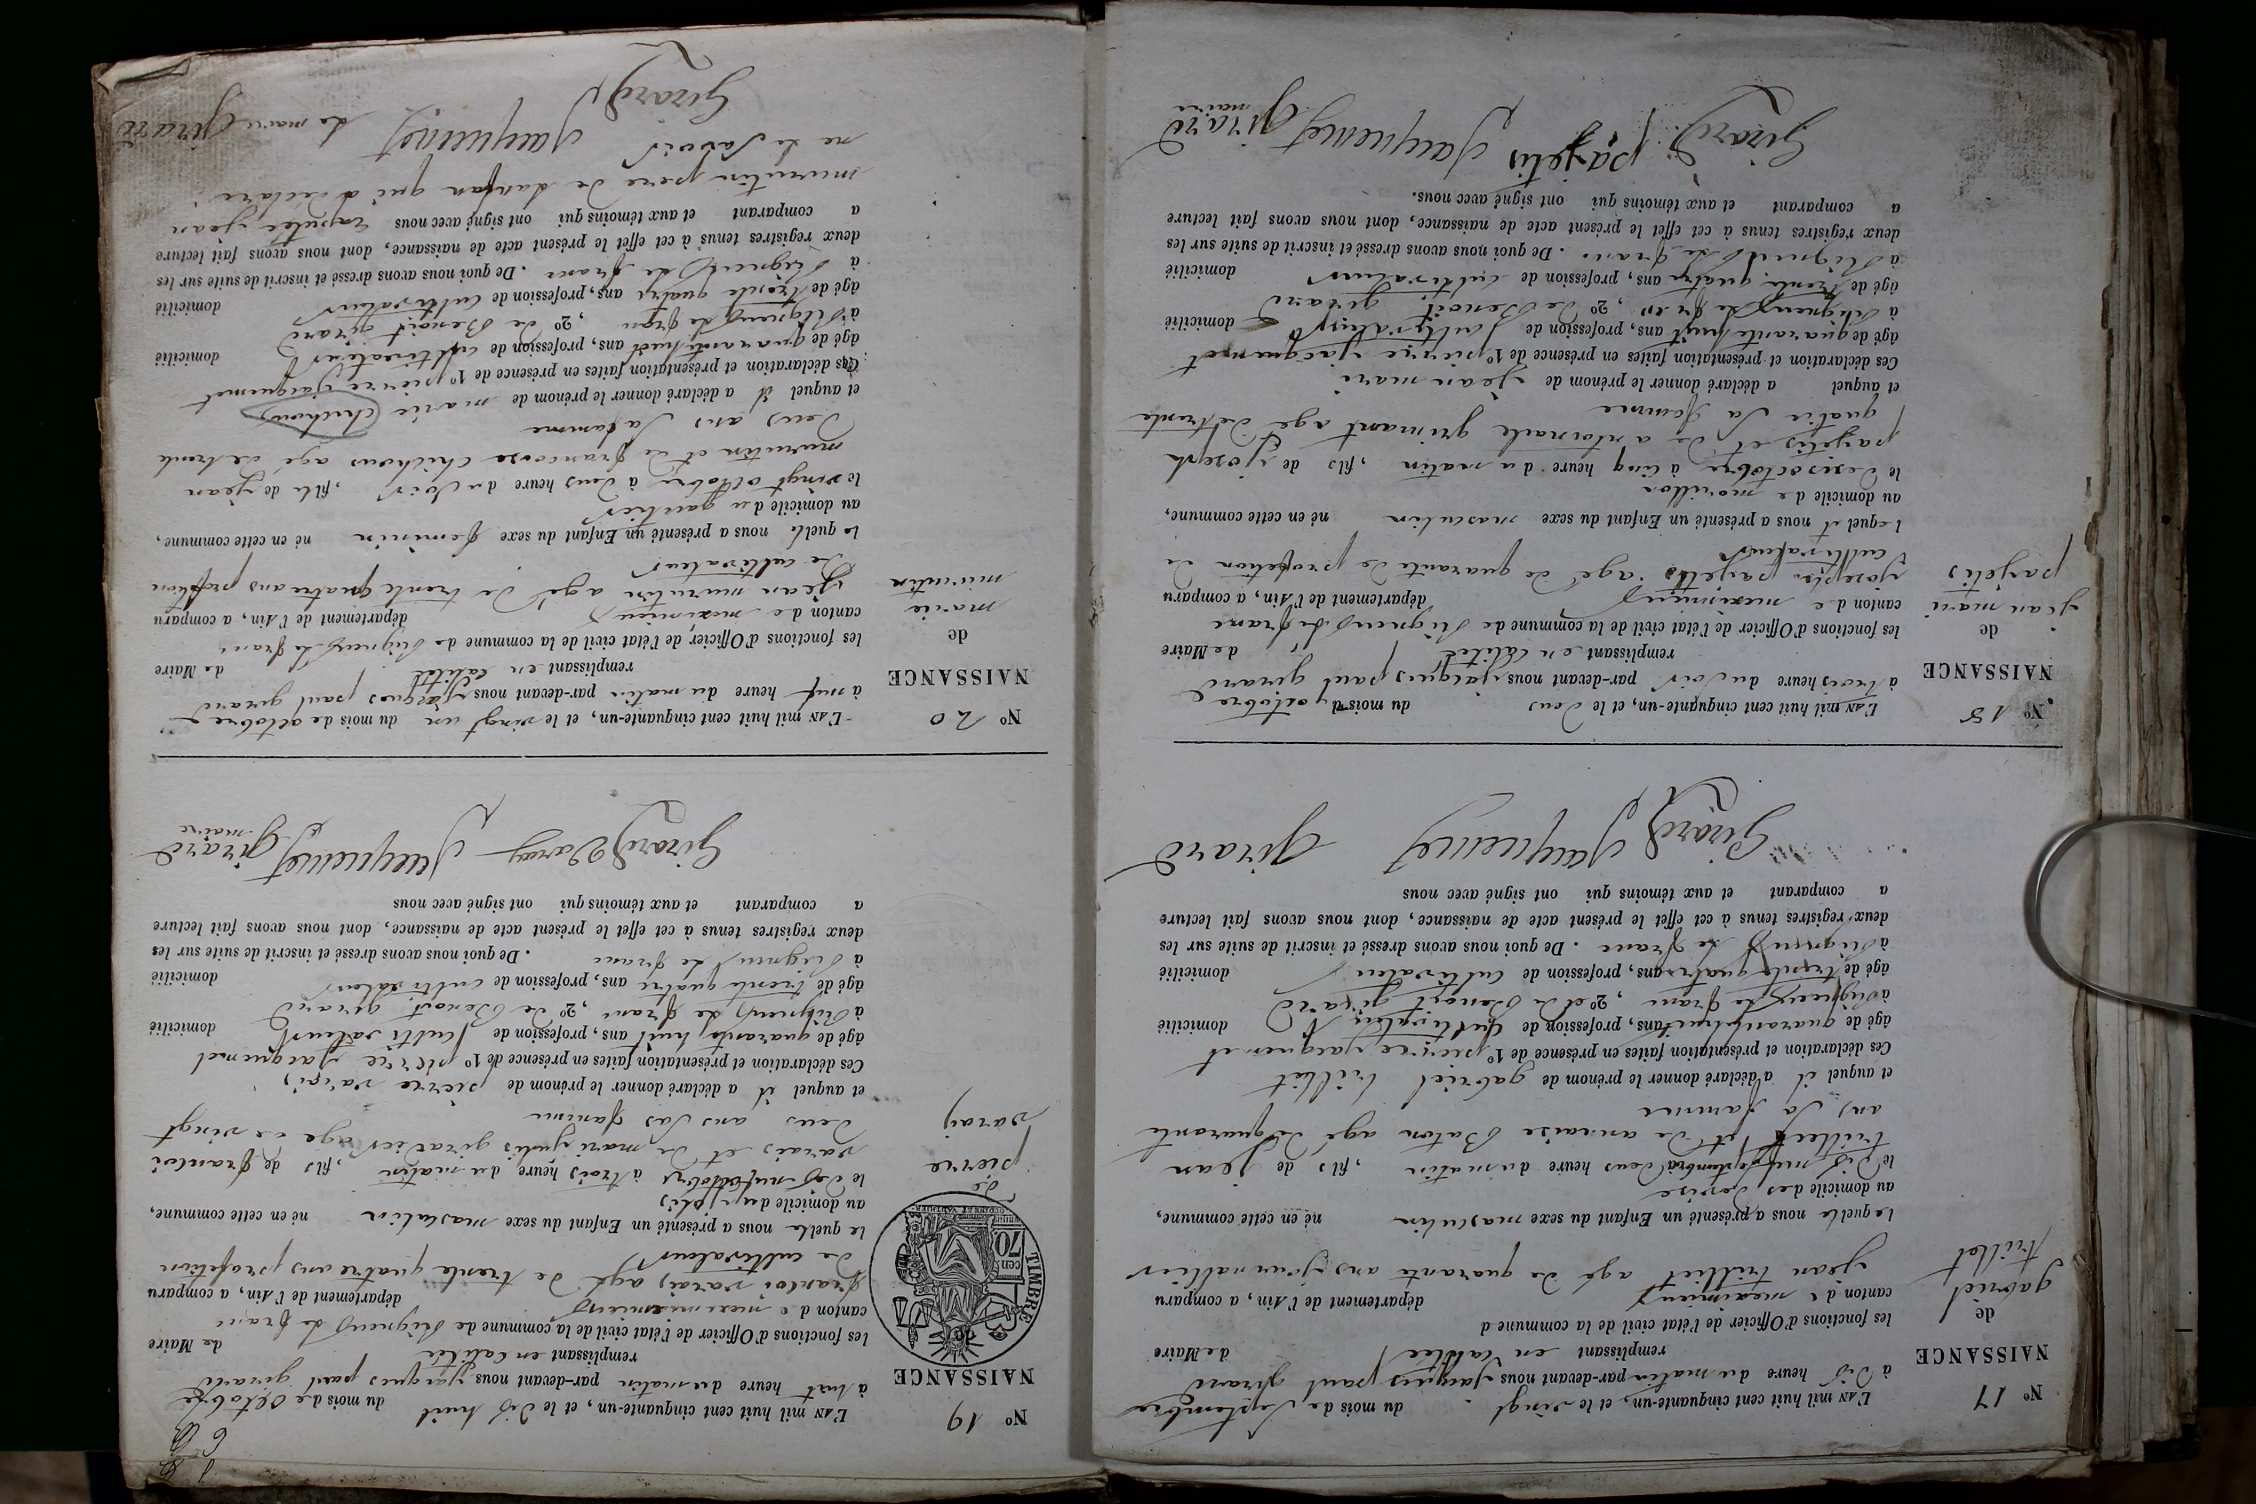 N° 17
NAISSANCE
de
gabriel
trillet
L'AN mil huit cent cinquante-un, et le vingt du mois de septembre
à dix heure du matin par-devant nous jacques paul girard
remplissant en calitée de Maire
les fonctions d'Officier de l'état civil de la commune d
canton de meximieux département de l'Ain, a comparu
jean trilliet agé de quarante ans journallier
lequelle nous a présenté un Enfant du sexe masculin né en cette commune,
au domicile des
le dix neuf septembre à deus heure du matin, fils de jean
trilliet et de Baton agé de quarante
ans sa famme
et auquel il a déclaré donner le prénom de gabriel trilliet
Ces déclaration et présentation faites en présence de 1° pierre jacquemet
âgé de quarante huit ans, profession de cultivateur domicilié
à Rigneux le franc, 2° et de Benoit girard
âgé de trente quatre ans, profession de cultivateur domicilié
à Rigneux le franc. De quoi nous avons dressé et inscrit de suite sur les
deux registres tenus à cet effet le présent acte de naissance, dont nous avons fait lecture
a comparant et aux témoins qui ont signé avec nous
Girard Jacquemet Girard
N° 18
NAISSANCE
de
jean marie
parjetis
L'AN mil huit cent cinquante-un, et le deus du mois d octobre
à trois heure du soir par-devant nous jacques paul girard
remplissant en calitée de Maire
les fonctions d'Officier de l'état civil de la commune de Rigneux le franc
canton de meximieux département de l'Ain, a comparu
joseph parjetis agé de quarante de profetion de
cultivateur
lequel et nous a présenté un Enfant du sexe masculin né en cette commune,
au domicile de morillon
le octobre à cinq heure du matin, fils de joseph
parjetis et de antoinaite agé de trente
quatre sa famme
et auquel a déclaré donner le prénom de jean marie
Ces déclaration et présentation faites en présence de 1° pierre jacquemet
âgé de quarante huit ans, profession de cultivateur domicilié
à Rigneux le franc, 2° de Benoit girard
âgé de trente quatre ans, profession de cultivateur domicilié
à Rigneux le franc. De quoi nous avons dressé et inscrit de suite sur les
deux registres tenus à cet effet le présent acte de naissance, dont nous avons fait lecture
a comparant et aux témoins qui ont signé avec nous.
Girard parjetis Jacquemet Girard
maire
N° 19
NAISSANCE
TIMBRE
70
cen
de
pierre
varaj
L'AN mil huit cent cinquante-un, et le dix huit du mois de octobre
à huit heure du matin par-devant nous jacques paul girard
remplissant en calitée de Maire
les fonctions d'Officier de l'état civil de la commune de Rigneux le franc
canton de meximieux département de l'Ain, a comparu
francoi varaj agé de trente quatre ans profetion
de cultivateur
lequelle nous a présenté un Enfant du sexe masculin né en cette commune,
au domicile du
le dix octobre à trois heure du matin, fils de francoi
varais et de mari agé de vingt
deus ans sas famme
et auquel il a déclaré donner le prénom de pierre
Ces déclaration et présentation faites en présence de 1° pierre jacquemet
âgé de quarante huit ans, profession de cultivateur domicilié
à Rigneux le franc, 2° de Benoit girard
âgé de trente quatre ans, profession de cultivateur domicilié
à Rigneux le franc. De quoi nous avons dressé et inscrit de suite sur les
deux registres tenus à cet effet le présent acte de naissance, dont nous avons fait lecture
a comparant et aux témoins qui ont signé avec nous
Girard Varay Jacquemet Girard
maire
N° 20
NAISSANCE
de
marie
murutin
L'AN mil huit cent cinquante-un, et le vingt un du mois de octobre
à neuf heure du matin par-devant nous jacques paul girard
remplissant en calitée de Maire
les fonctions d'Officier de l'état civil de la commune de Rigneux le franc
canton de meximieux département de l'Ain, a comparu
jean murutin agé de trente quatre ans profetion
de cultivateur
lequelle nous a présenté un Enfant du sexe féminin né en cette commune,
au domicile du gautier
le vingt octobre à deus heure du soir, fils de jean
murutin et de francoise chichoux agé de trente
deus ans sa famme
et auquel il a déclaré donner le prénom de marie chichoux
Ces déclaration et présentation faites en présence de 1° pierre jacquemet
âgé de quarante huit ans, profession de cultivateur domicilié
à Rigneux le franc, 2° de Benoit girard
âgé de trente quatre ans, profession de cultivateur domicilié
à Rigneux le franc. De quoi nous avons dressé et inscrit de suite sur les
deux registres tenus à cet effet le présent acte de naissance, dont nous avons fait lecture
a comparant et aux témoins qui ont signé avec nous jean
murutin pere de qui a déclaré
ne le savoir Jacquemet le maire Girard
Girard